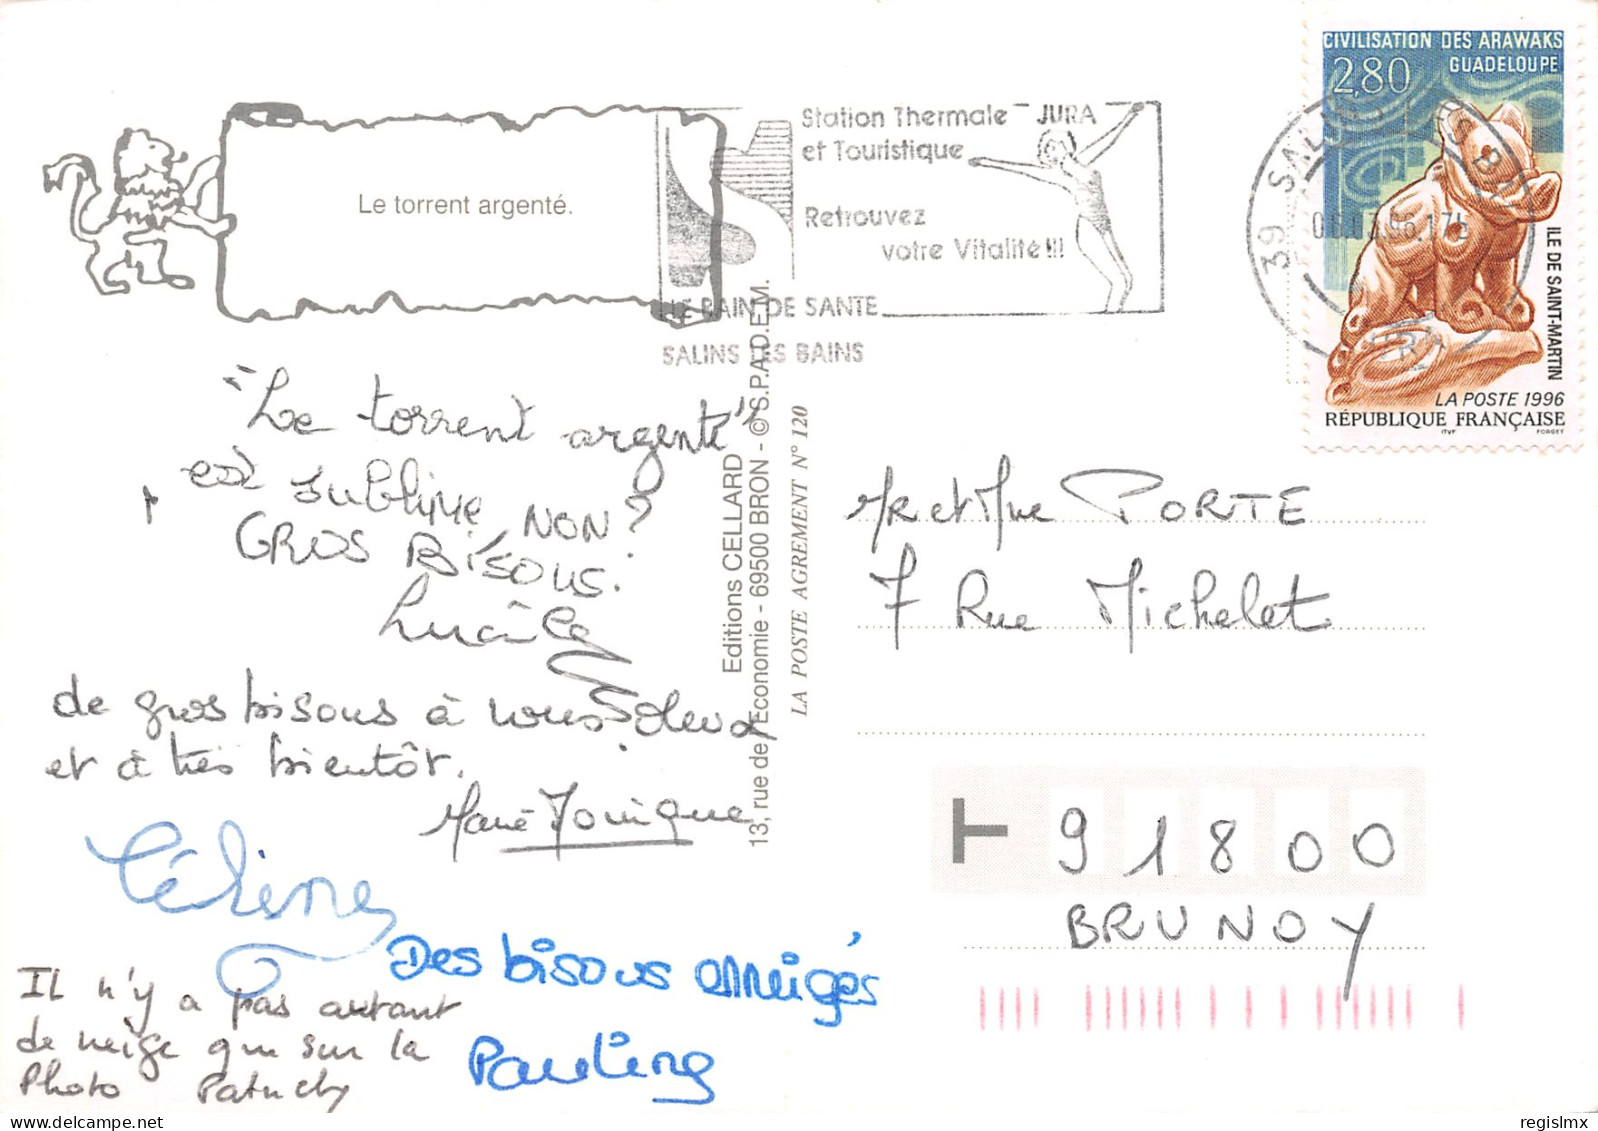 CIVILISATION DES ARAWAKS
GUADELOUPE
2,80
ILE DE SAINT-MARTIN
LA POSTE 1996
RÉPUBLIQUE FRANÇAISE
ITVF FORGET
Station Thermale JURA
et Touristique
Retrouvez
votre Vitalité !!!
LE BAIN DE SANTE
SALINS LES BAINS
39 SALINS
Le torrent argenté.
"Le torrent argenté"
est sublime, NON?
GROS BISOUS.
Lucile
de gros bisous à vous
et à très bientôt.
Marie Monique
Céline
Des bisous enneigés
Pauline
IL n'y a pas autant
de neige que sur la
Photo Patrick
Editions CELLARD
13, rue de l'Economie - 69500 BRON - © S.P.A.D.E.M.
LA POSTE AGREMENT N° 120
Mr et Mme PORTE
7 Rue Michelet
T 91800
BRUNOY
regislmx